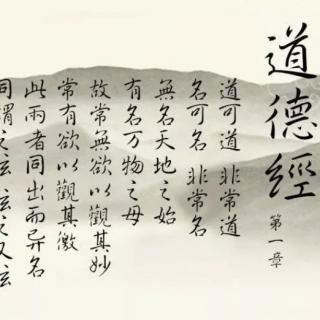 道德經
第一章
道可道 非常道
名可名 非常名
無名天地之始
有名万物之母
故常無欲以觀其妙
常有欲以觀其徼
此兩者同出而异名
同謂之玄玄之又玄